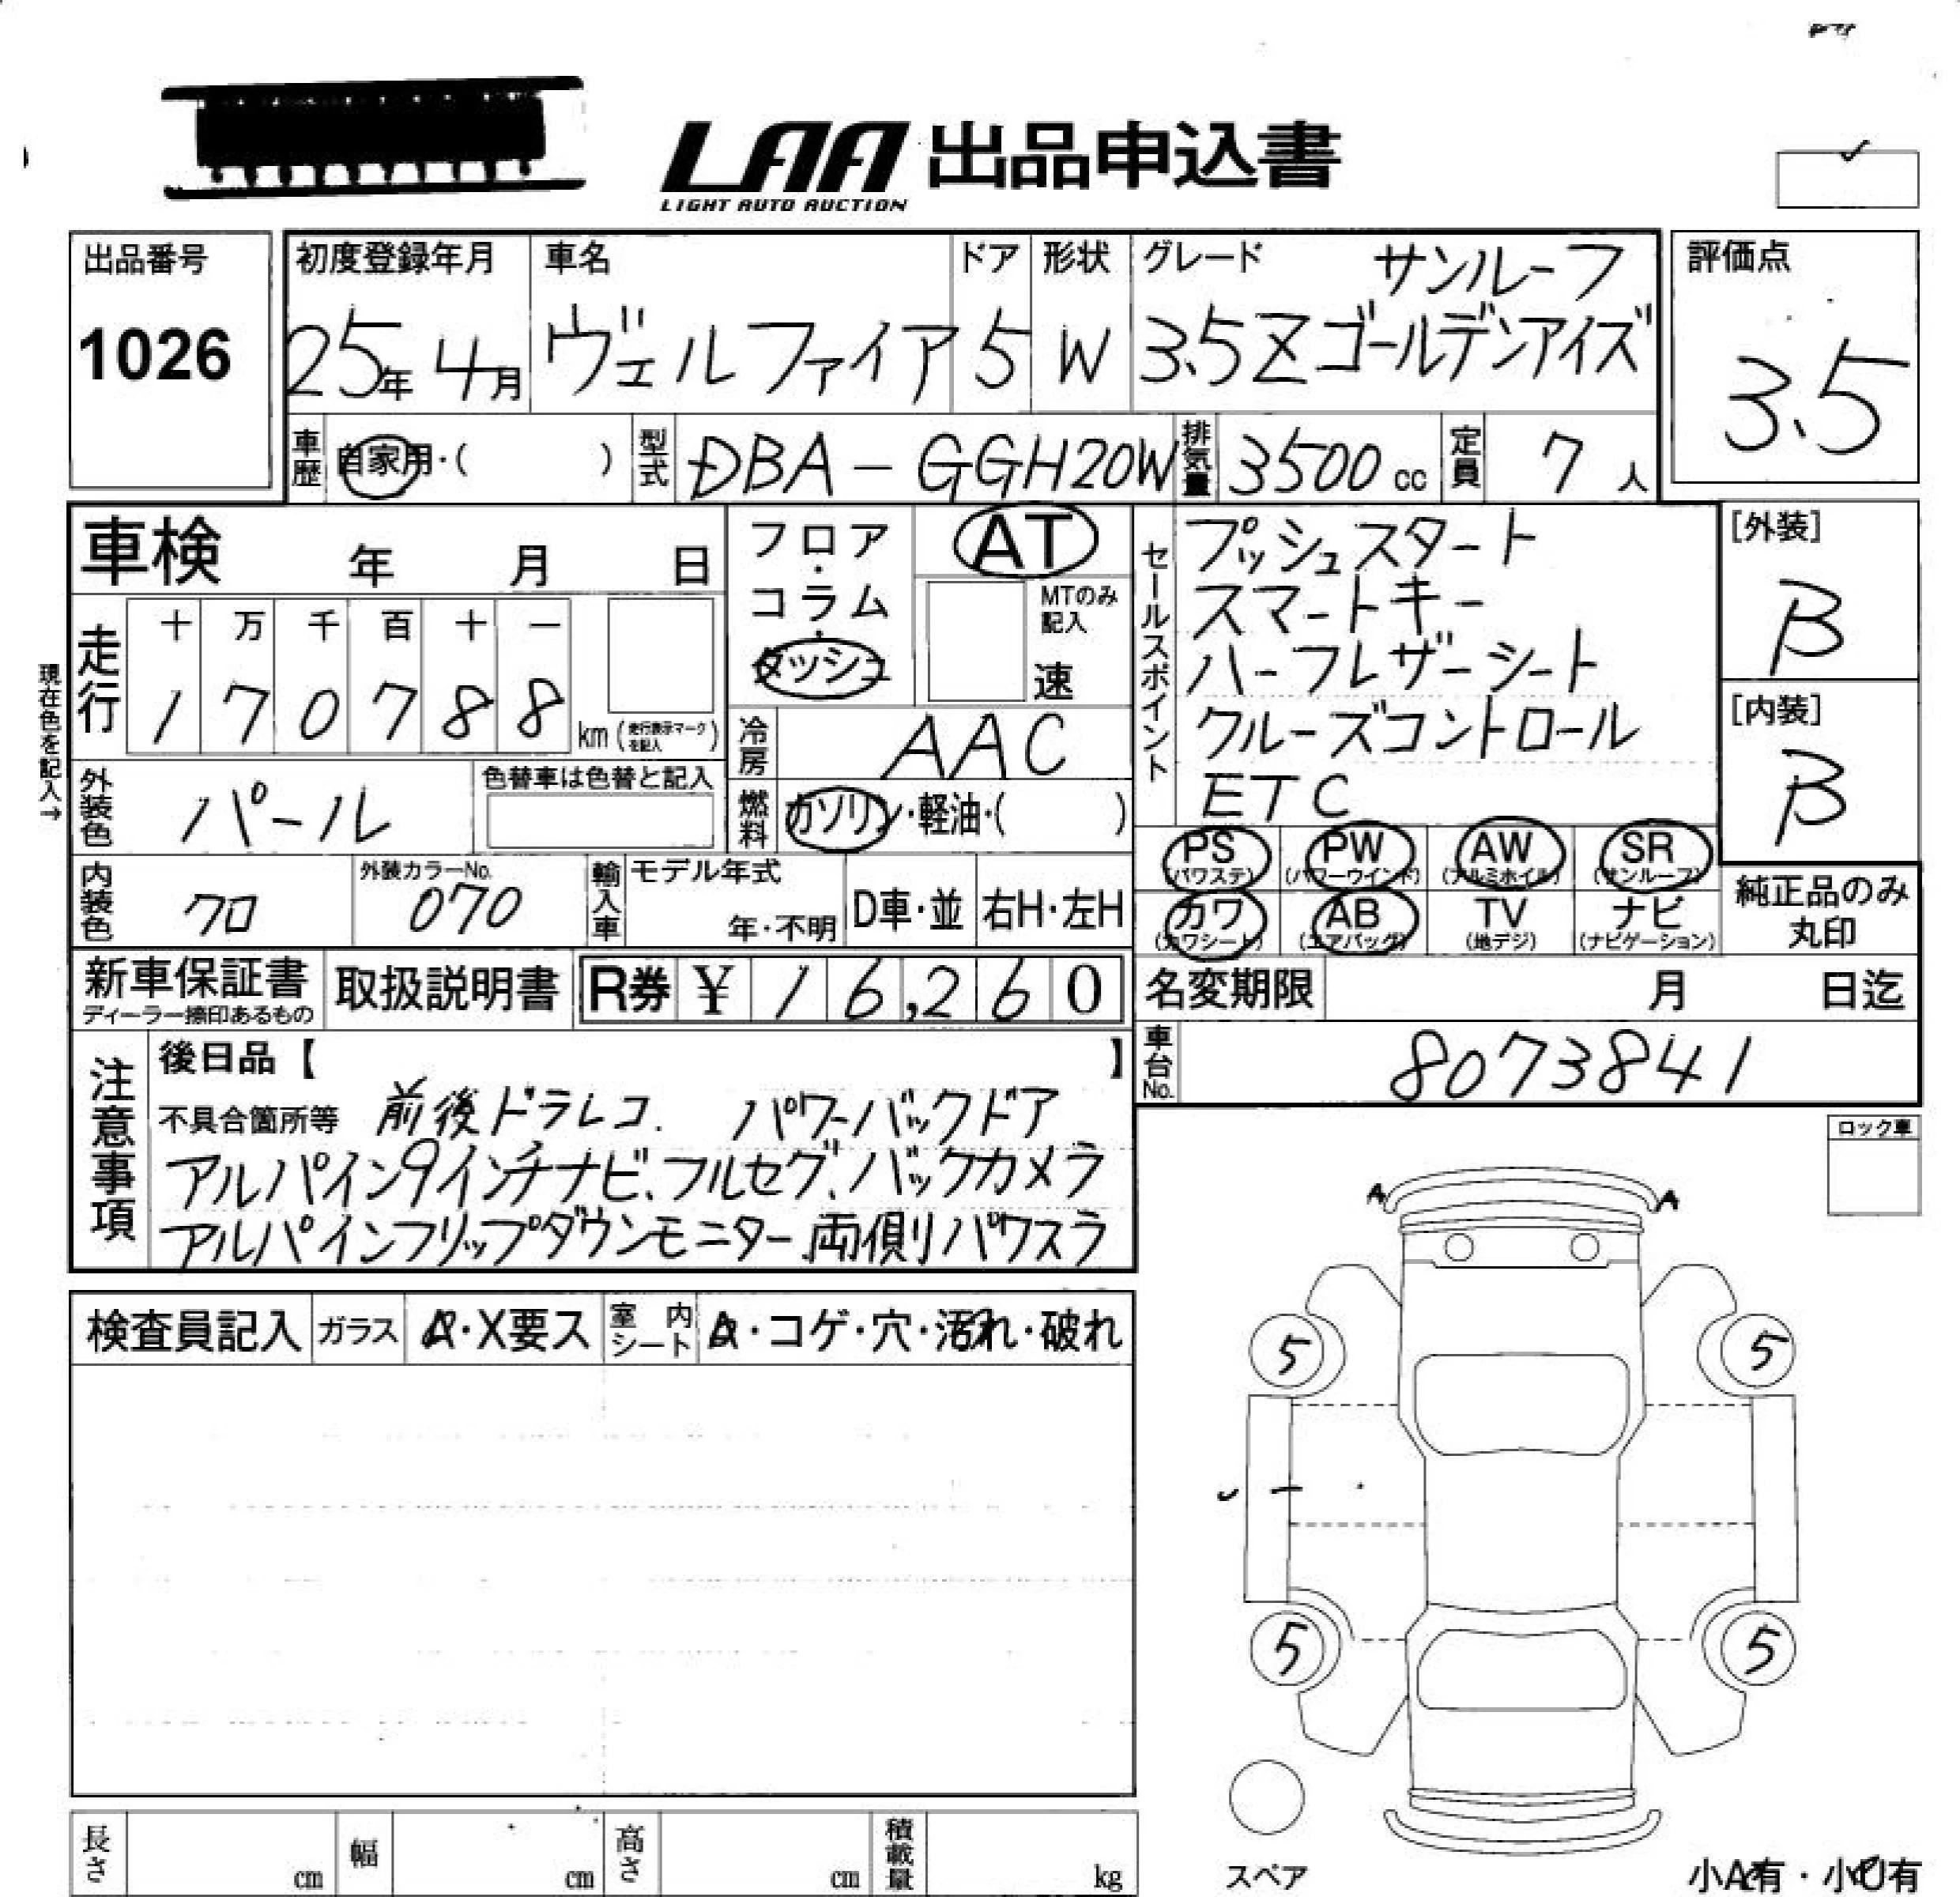 LAA 出品申込書
LIGHT AUTO AUCTION
出品番号
1026
初度登録年月
25年 4月
車名
ヴェルファイア
ドア
5
形状
W
グレード サンルーフ
3.5Zゴールデンアイズ
評価点
3.5
車歴 自家用・( )
型式 DBA-GGH20W
排気量 3500 cc
定員 7 人
車検 年 月 日
フロア・コラム・ダッシュ
AT
MTのみ記入
速
走行
十 万 千 百 十 一
1 7 0 7 8 8 km(走行表示マークを記入)
現在色を記入→
外装色 パール
色替車は色替と記入
冷房 AAC
燃料 ガソリン・軽油・( )
内装色 クロ
外装カラーNo.
070
輸入車
モデル年式
年・不明
D車・並
右H・左H
セールスポイント
プッシュスタート
スマートキー
ハーフレザーシート
クルーズコントロール
ETC
[外装]
B
[内装]
B
PS (パワステ) PW (パワーウインド) AW (アルミホイル) SR (サンルーフ)
カワ (カワシート) AB (エアバッグ) TV (地デジ) ナビ (ナビゲーション)
純正品のみ
丸印
新車保証書
ディーラー捺印あるもの
取扱説明書
R券 ¥ 16,260
名変期限 月 日迄
車台No. 8073841
注意事項
後日品【 】
不具合箇所等 前後ドラレコ. パワーバックドア
アルパイン9インチナビ、フルセグ、バックカメラ
アルパインフリップダウンモニター、両側パワスラ
ロック車
A A
5 5
5 5
検査員記入 ガラス A・X要ス 室内シート A・コゲ・穴・汚れ・破れ
長さ cm 幅 cm 高さ cm 積載量 kg
スペア
小A有・小U有